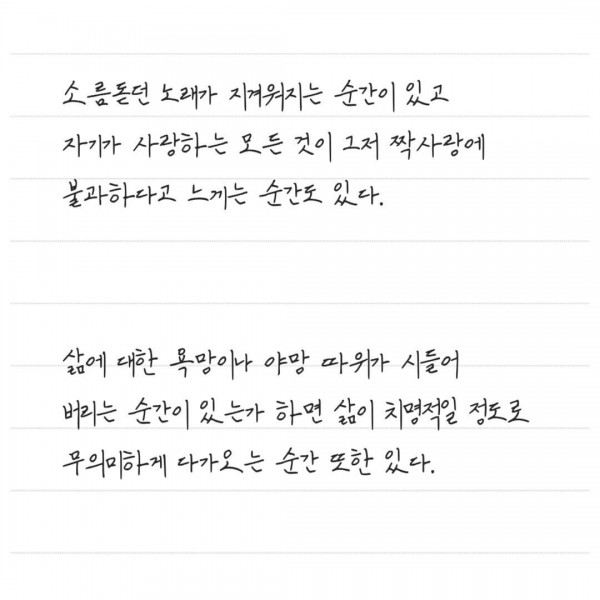 소름돋던 노래가 지겨워지는 순간이 있고
자기가 사랑하는 모든 것이 그저 짝사랑에
불과하다고 느끼는 순간도 있다.
삶에 대한 욕망이나 야망 따위가 시들어
버리는 순간이 있는가 하면 삶이 치명적일 정도로
무의미하게 다가오는 순간 또한 있다.